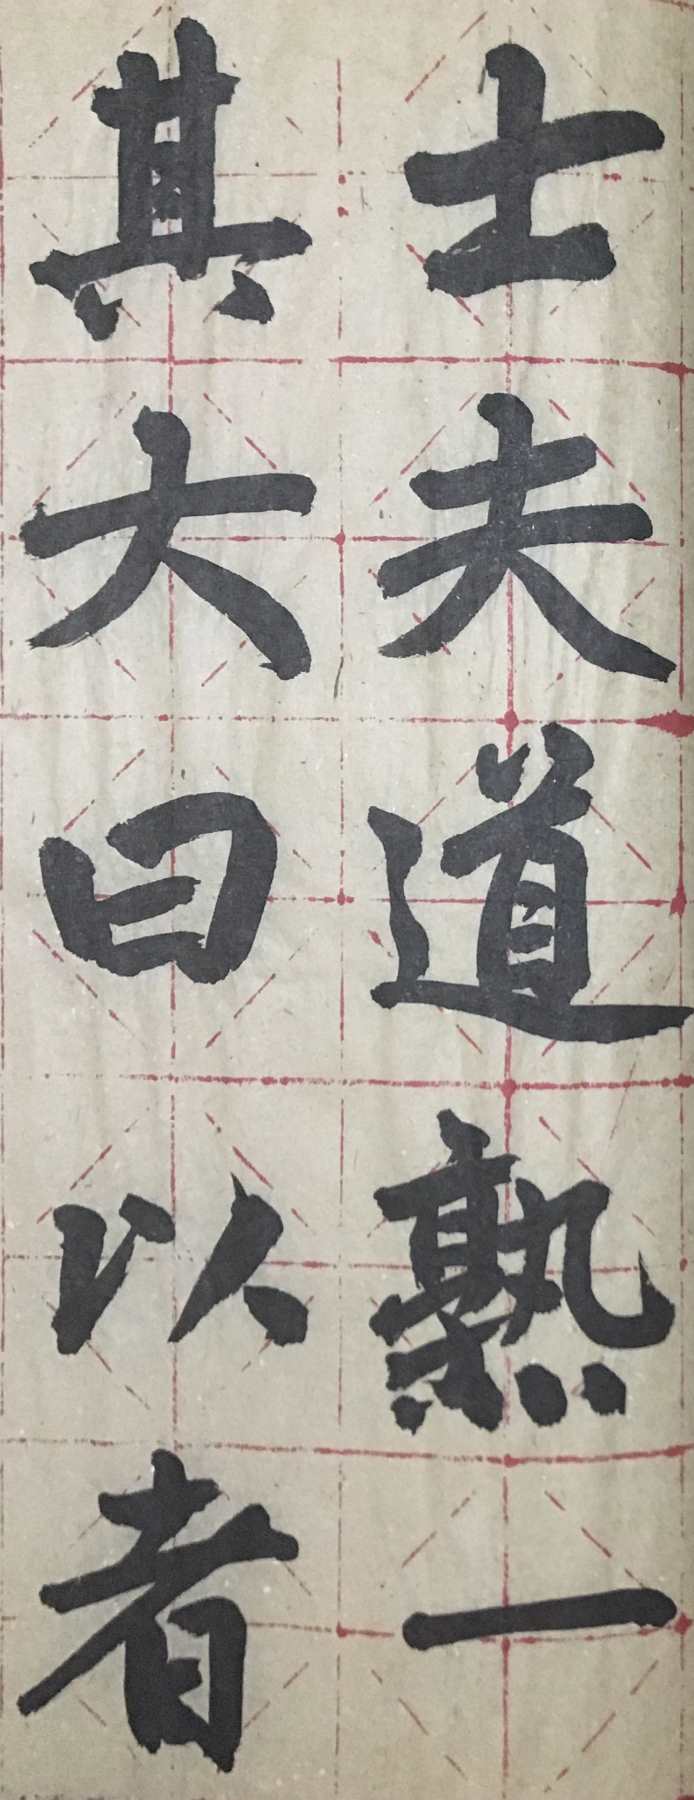 士夫道熟一
其大曰以者